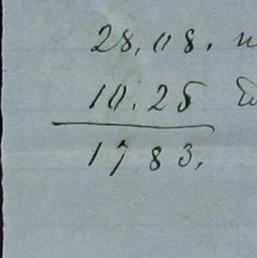 28.08.
10.25
1783.